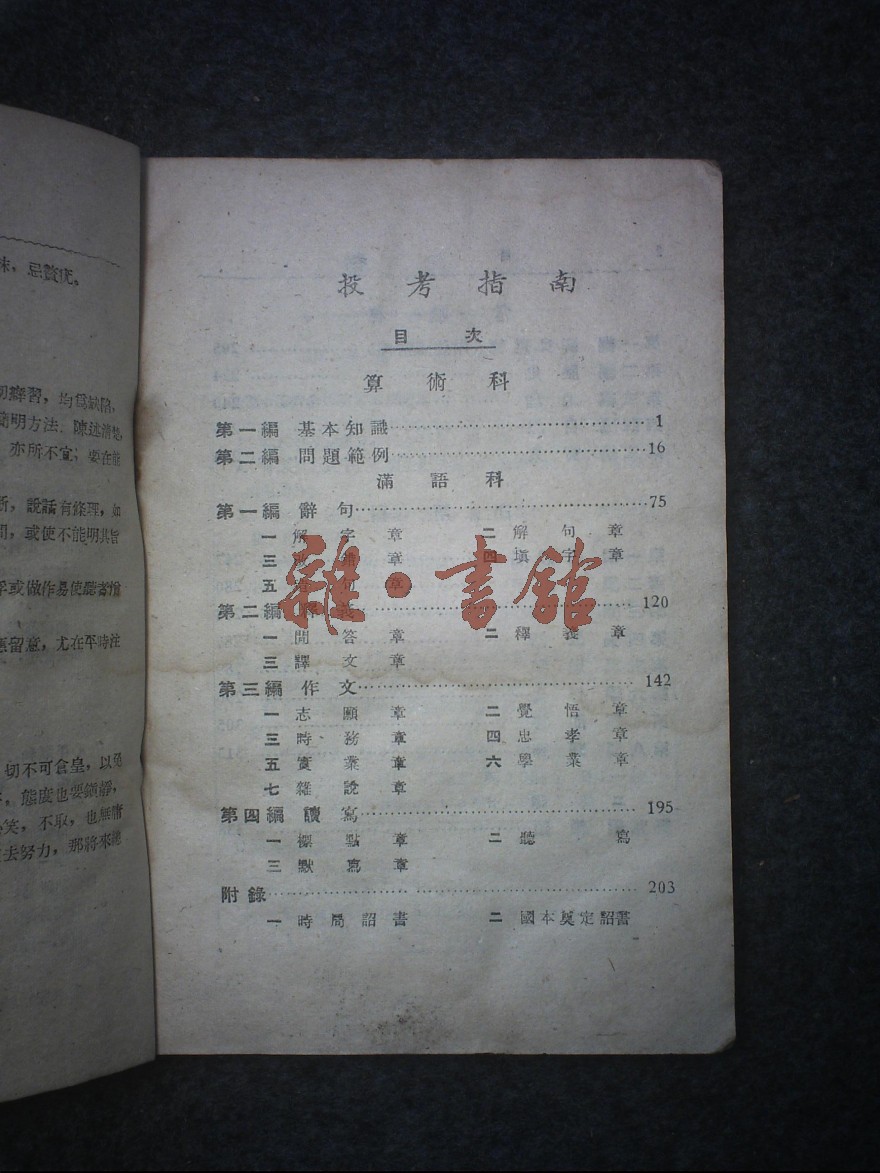 投考指南
目次
算術科
第一編 基本知識……1
第二編 問題範例……16
滿語科
第一編 辭句……75
一 解字章 二 解句章
三 章 四 填字章
五 句章
第二編 解義……120
一 問答章 二 釋義章
三 譯文章
第三編 作文……142
一 志願章 二 覺悟章
三 時務章 四 忠孝章
五 實業章 六 學業章
七 雜說章
第四編 讀寫……195
一 標點章 二 聽寫
三 默寫章
附錄……203
一 時局詔書 二 國本奠定詔書
雜·書館
味,忌
切
習,均爲缺陷,
簡明方法,陳述清楚,
亦所不宜;要在能
斷,說話有條理,如
間,或使不能明其旨
或做作易使聽者
應留意,尤在平時注
切不可倉皇,以免
態度也要鎮靜,
笑,不取,也無
去努力,那將來